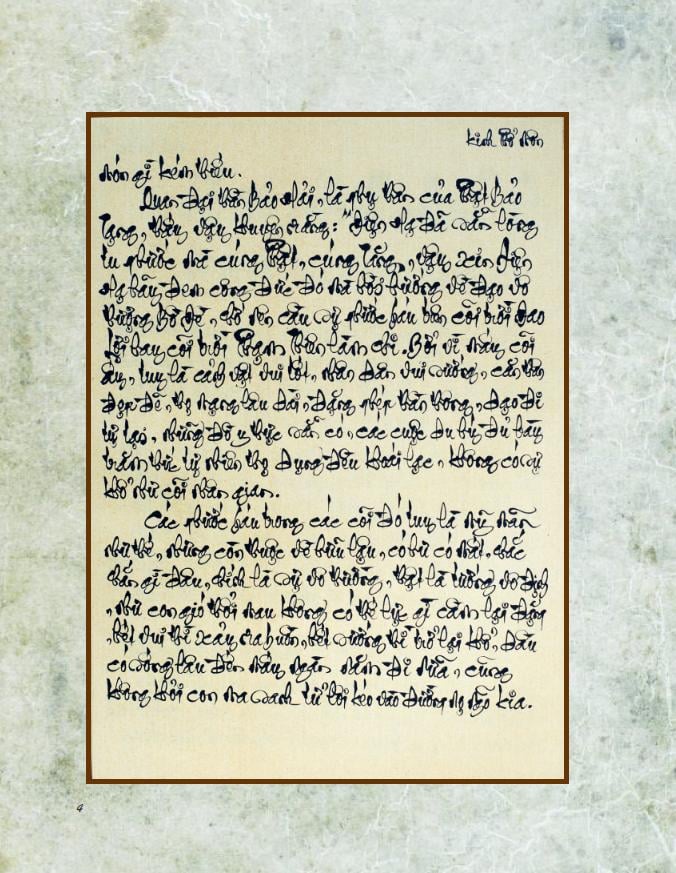 Kinh Thổ nôn
gì kém thiếu.
Quan Đại thần Bảo Hải, là phụ thần của Phật Bảo
Tạng, thấy vậy khuyên rằng: "Điện Hạ đã sẵn lòng
tu phước mà cúng Phật, cúng Tăng, vậy xin Điện
Hạ hãy đem công đức đó mà hồi hướng về đạo vô
thượng Bồ Đề, chớ nên cầu sự phước báu trên cõi trời Đao
Lợi hay cõi trời Phạm Thiên làm chi. Bởi vì mấy cõi
ấy, tuy là cảnh vật vui tốt, nhân dân vui sướng, căn thân
đẹp đẽ, thọ mạng lâu dài, đặng phép thần thông, đạo đi
tự tại, những đồ y thực sẵn có, các cuộc du hý đủ bày
trăm thức tự nhiên thọ dụng đều khoái lạc, không có sự
khổ như cõi nhân gian.
Các phước báu trong các cõi đó tuy là mỹ mãn
như thế, nhưng còn thuộc về hữu lậu, có hư có mất, chắc
chắn gì đâu, chính là sự vô thường, thật là tướng vô định
, như con gió thổi mau không có thế lực gì cầm lại đặng
, hết vui thì xảy ra buồn, hết sướng thì trở lại khổ, dầu
có sống lâu đến mấy ngàn năm đi nữa, cũng
không khỏi con ma sanh tử lôi kéo vào đường nọ ngõ kia.
4